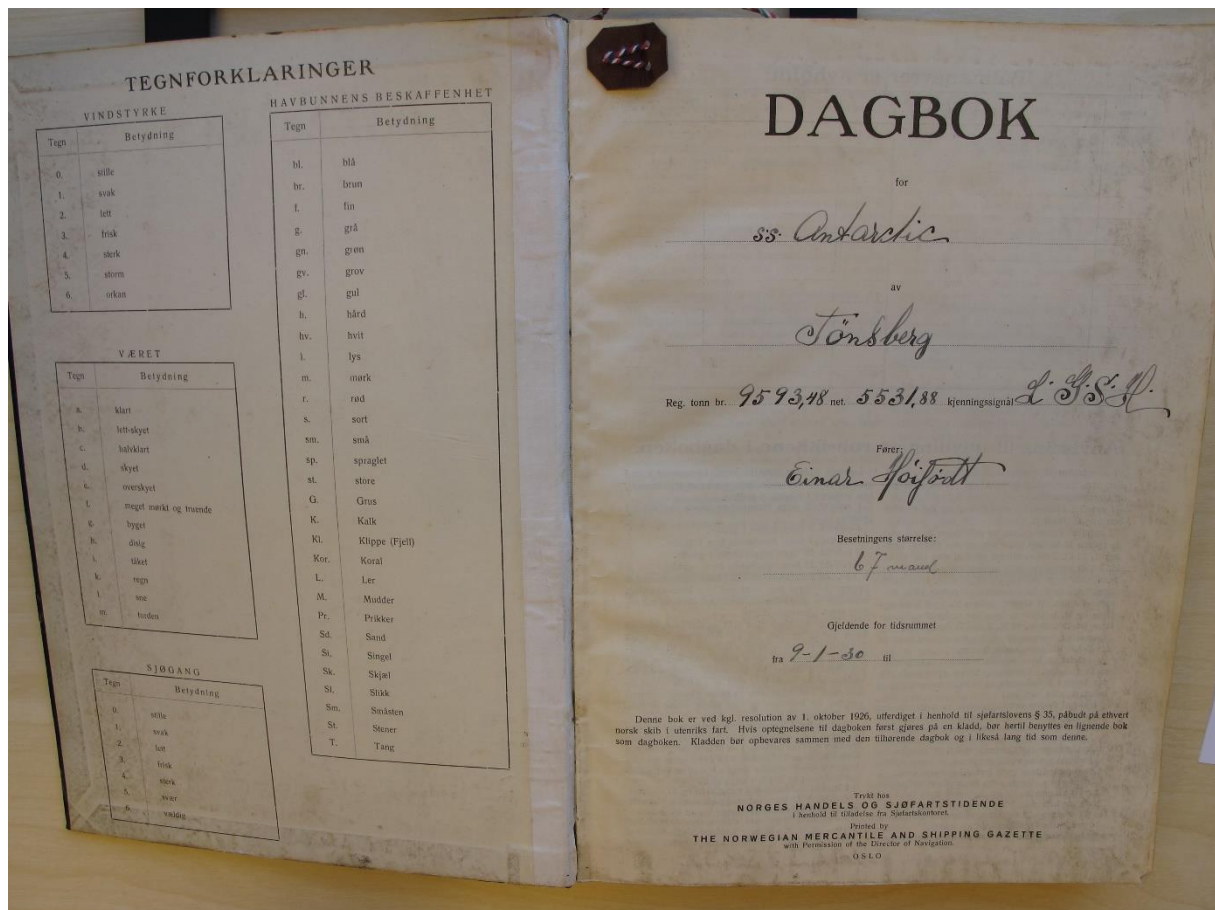 TEGNFORKLARINGER
VINDSTYRKE
Tegn Betydning
0. stille
1. svak
2. lett
3. frisk
4. sterk
5. storm
6. orkan
VÆRET
Tegn Betydning
a. klart
b. lett-skyet
c. halvklart
d. skyet
e. overskyet
f. meget mørkt og truende
g. byget
h. disig
i. tåket
k. regn
l. sne
m. torden
SJØGANG
Tegn Betydning
0. stille
1. svak
2. lett
3. frisk
4. sterk
5. svær
6. veldig
HAVBUNNENS BESKAFFENHET
Tegn Betydning
bl. blå
br. brun
f. fin
g. grå
gn. grøn
gv. grov
gl. gul
h. hård
hv. hvit
l. lys
m. mørk
r. rød
s. sort
sm. små
sp. spraglet
st. store
G. Grus
K. Kalk
Kl. Klippe (Fjell)
Kor. Koral
L. Ler
M. Mudder
Pr. Prikker
Sd. Sand
Si. Singel
Sk. Skjæl
Sl. Slikk
Sm. Småsten
St. Stener
T. Tang
DAGBOK
for
s.s. Antarctic
av
Tönsberg
Reg. tonn br. 9593,48 net. 5531,88 kjenningssignal L. G. S. H.
Fører:
Einar Høifødt
Besetningens størrelse:
67 mand
Gjeldende for tidsrummet
fra 9-1-30 til
Denne bok er ved kgl. resolution av 1. oktober 1926, utferdiget i henhold til sjøfartslovens § 35, påbudt på ethvert
norsk skib i utenriks fart. Hvis optegnelsene til dagboken først gjøres på en kladd, bør hertil benyttes en lignende bok
som dagboken. Kladden bør opbevares sammen med den tilhørende dagbok og i likeså lang tid som denne.
Trykt hos
NORGES HANDELS OG SJØFARTSTIDENDE
i henhold til tilladelse fra Sjøfartskontoret.
Printed by
THE NORWEGIAN MERCANTILE AND SHIPPING GAZETTE
with Permission of the Director of Navigation.
OSLO